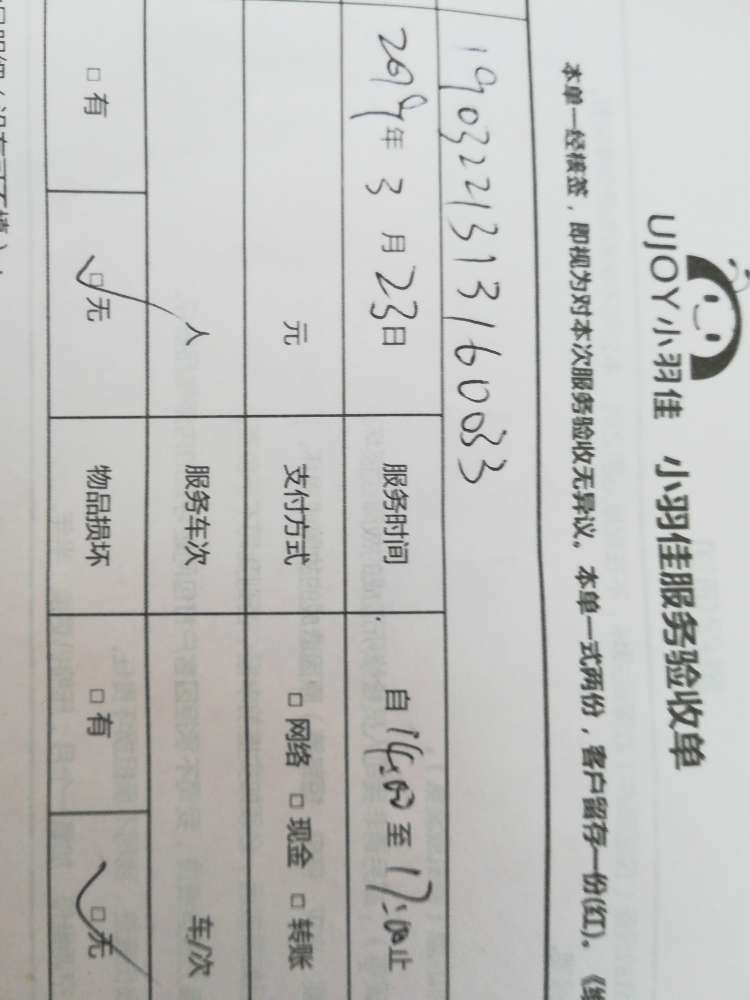 UJOY小羽佳 小羽佳服务验收单
本单一经核签，即视为对本次服务验收无异议。本单一式两份，客户留存一份(红)。
190322131316033
2019年 3 月 23日 服务时间 自 14:00 至 17:00止
元 支付方式 □ 网络 □ 现金 □ 转账
人 服务车次 车/次
□ 有 □ 无 物品损坏 □ 有 □ 无